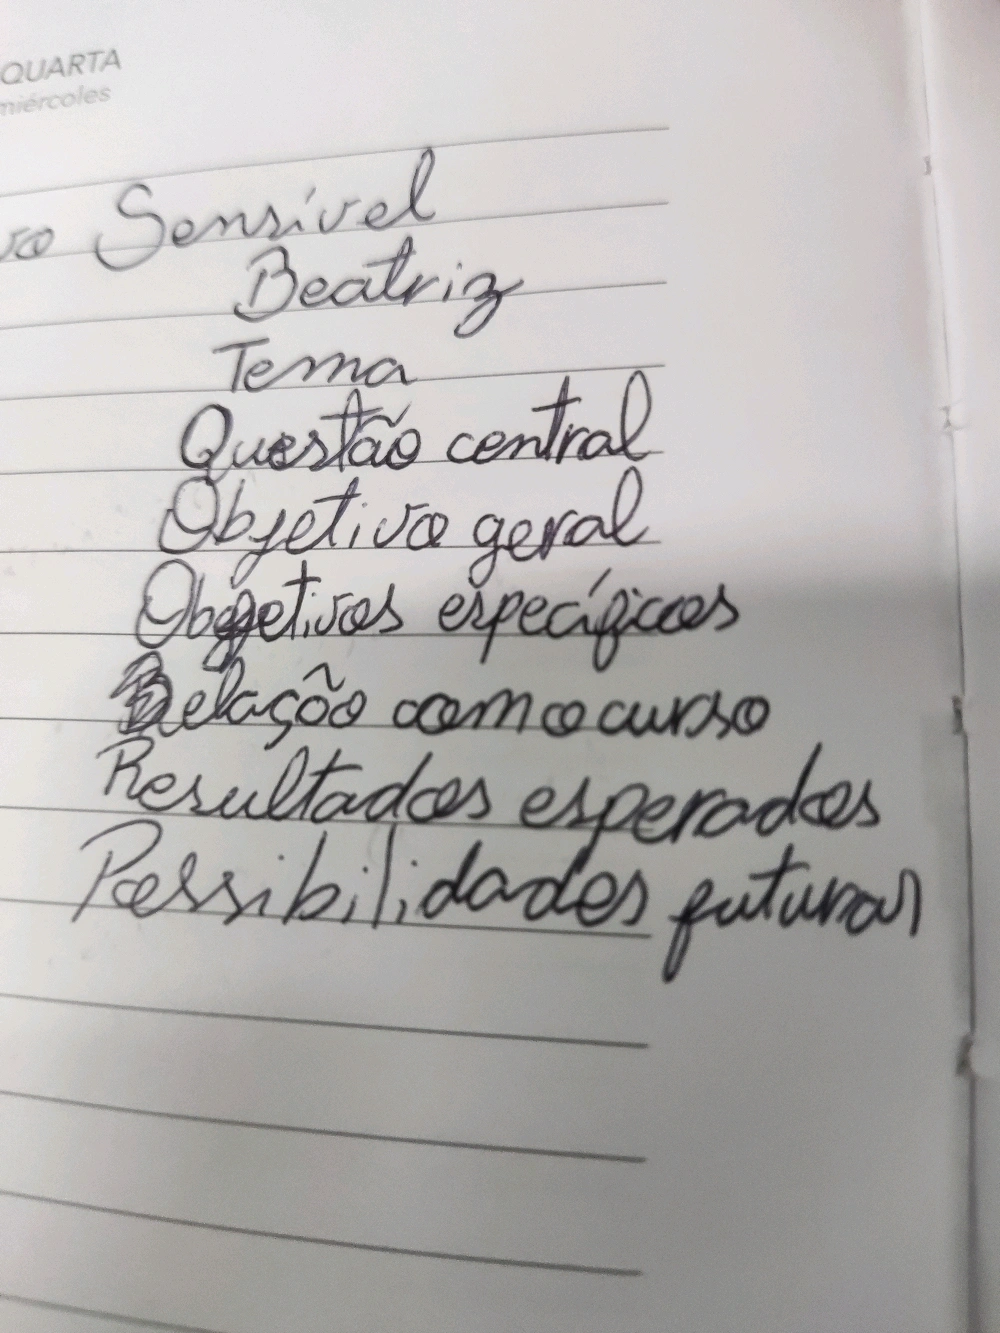 QUARTA
miércoles
vo Sensível
Beatriz
Tema
Questão central
Objetivo geral
Objetivos específicos
Relação com o curso
Resultados esperados
Possibilidades futuras